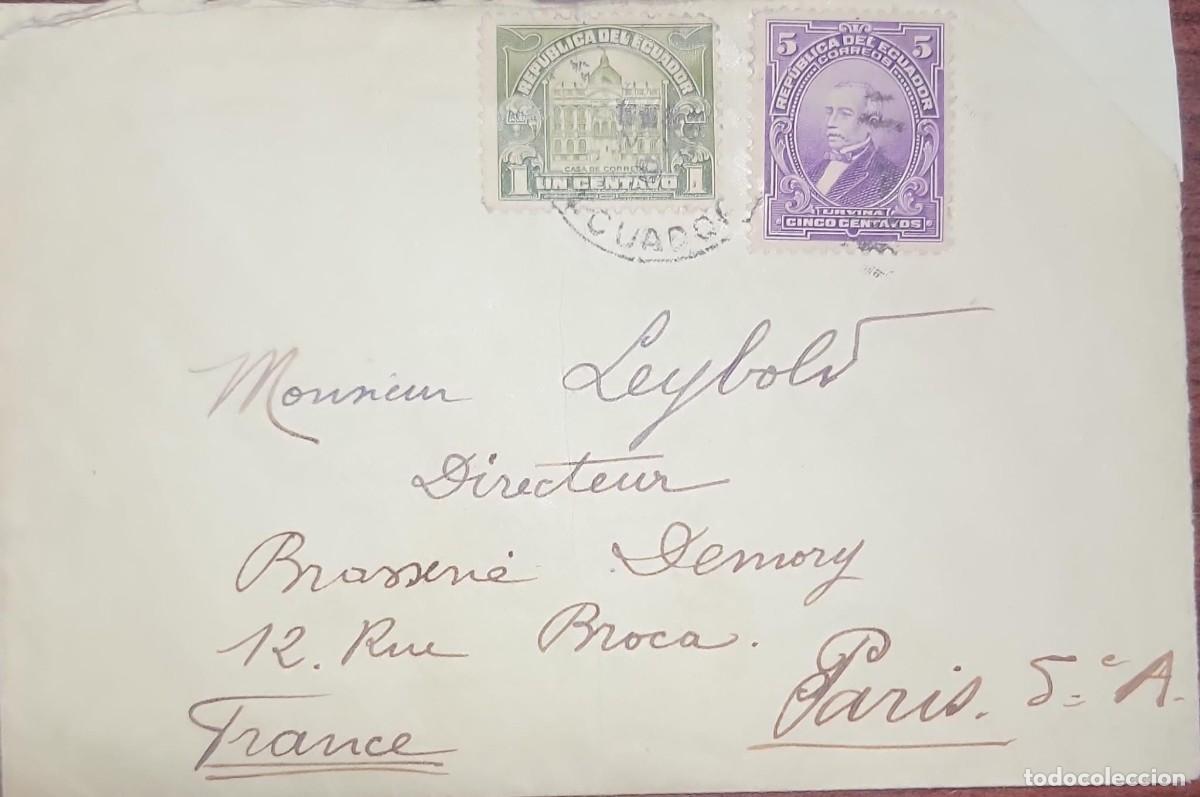 REPUBLICA DEL ECUADOR
CASA DE CORREOS
1 UN CENTAVO 1
5 5
REPUBLICA DEL ECUADOR
CORREOS
URVINA
CINCO CENTAVOS
ECUADOR
Monsieur Leybold
Directeur
Brasserie Demory
12. Rue Broca.
Paris. 5.e A.
France
todocoleccion